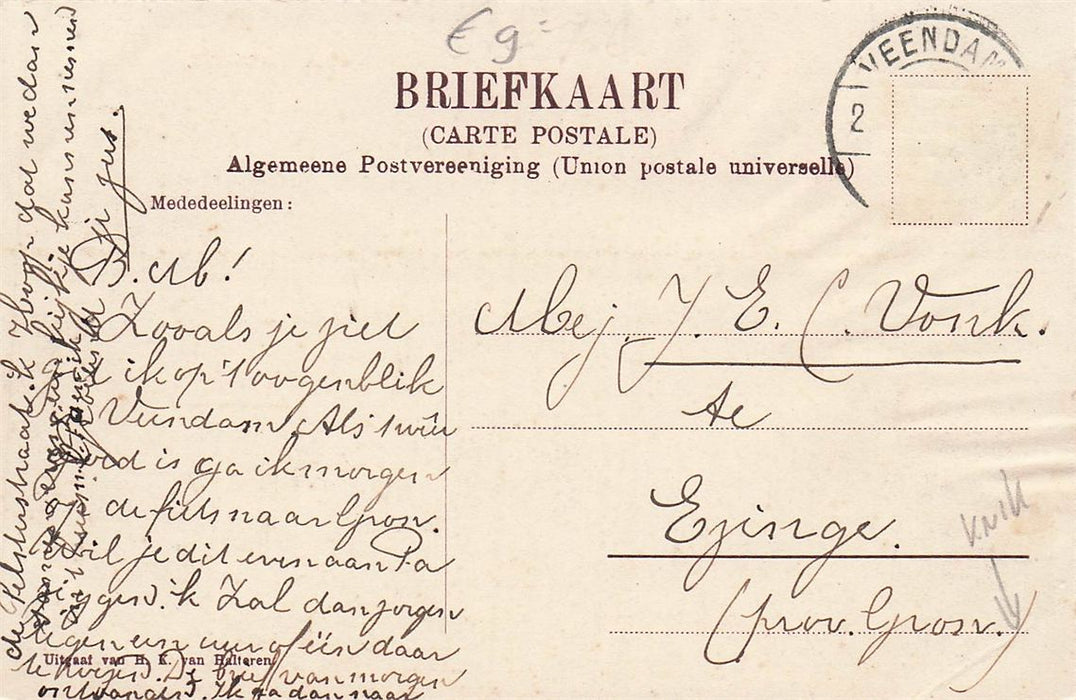 Eg:
BRIEFKAART
(CARTE POSTALE)
Algemeene Postvereeniging (Union postale universelle)
VEENDAM
2
Mededeelingen:
B. M!
Zooals je ziet
ik op 't oogenblik
Veendam. Als 't weer
goed is ga ik morgen
op de fiets naar Gron.
Wil je dit even aan Pa
zeggen. Ik zal dan zorgen
tegen een uur of één daar
te wezen. De brief van morgen
ontvangen. Ik ga dan naar
de Pelsterstraat. Ik hoop dat we dan
kijkje kunnen nemen
Mej. J. E. C. Vonk.
te
Ezinge.
(prov. Gron.)
knik
Uitgaaf van H. K. van Halteren